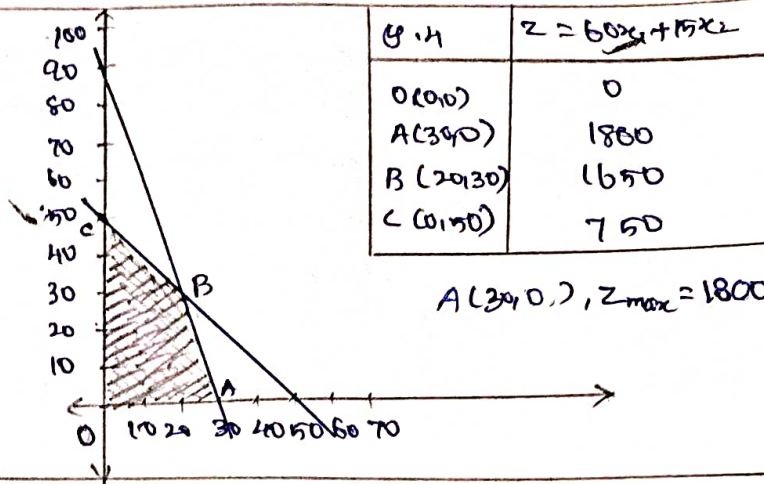 100
90
80
70
60
50
C
40
30
20
10
B
A
0 10 20 30 40 50 60 70
Z = 60x₁ + 15x₂
O(0,0) 0
A(30,0) 1800
B(20,30) 1650
C(0,50) 750
A(30,0), Zmax = 1800